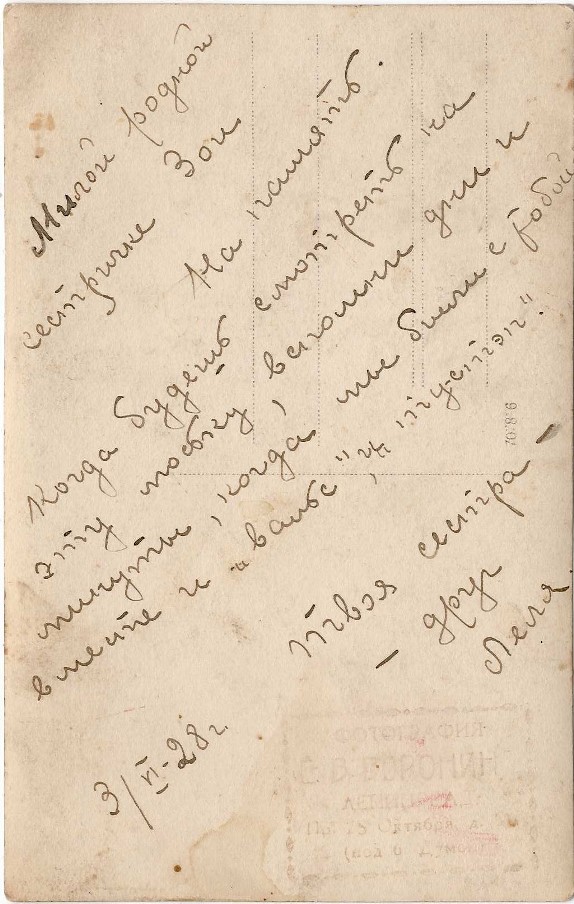 Милой родной
сестричке Зои
На память.
Когда будешь смотреть на
эту мобку, вспомни дни и
минуты, когда мы были с тобой
вместе и „вальс" и „тустэп".
твоя сестра –
– друг
Леля.
3/VI-28 г.
70.8.6
ФОТОГРАФИЯ
25 Октября, д.